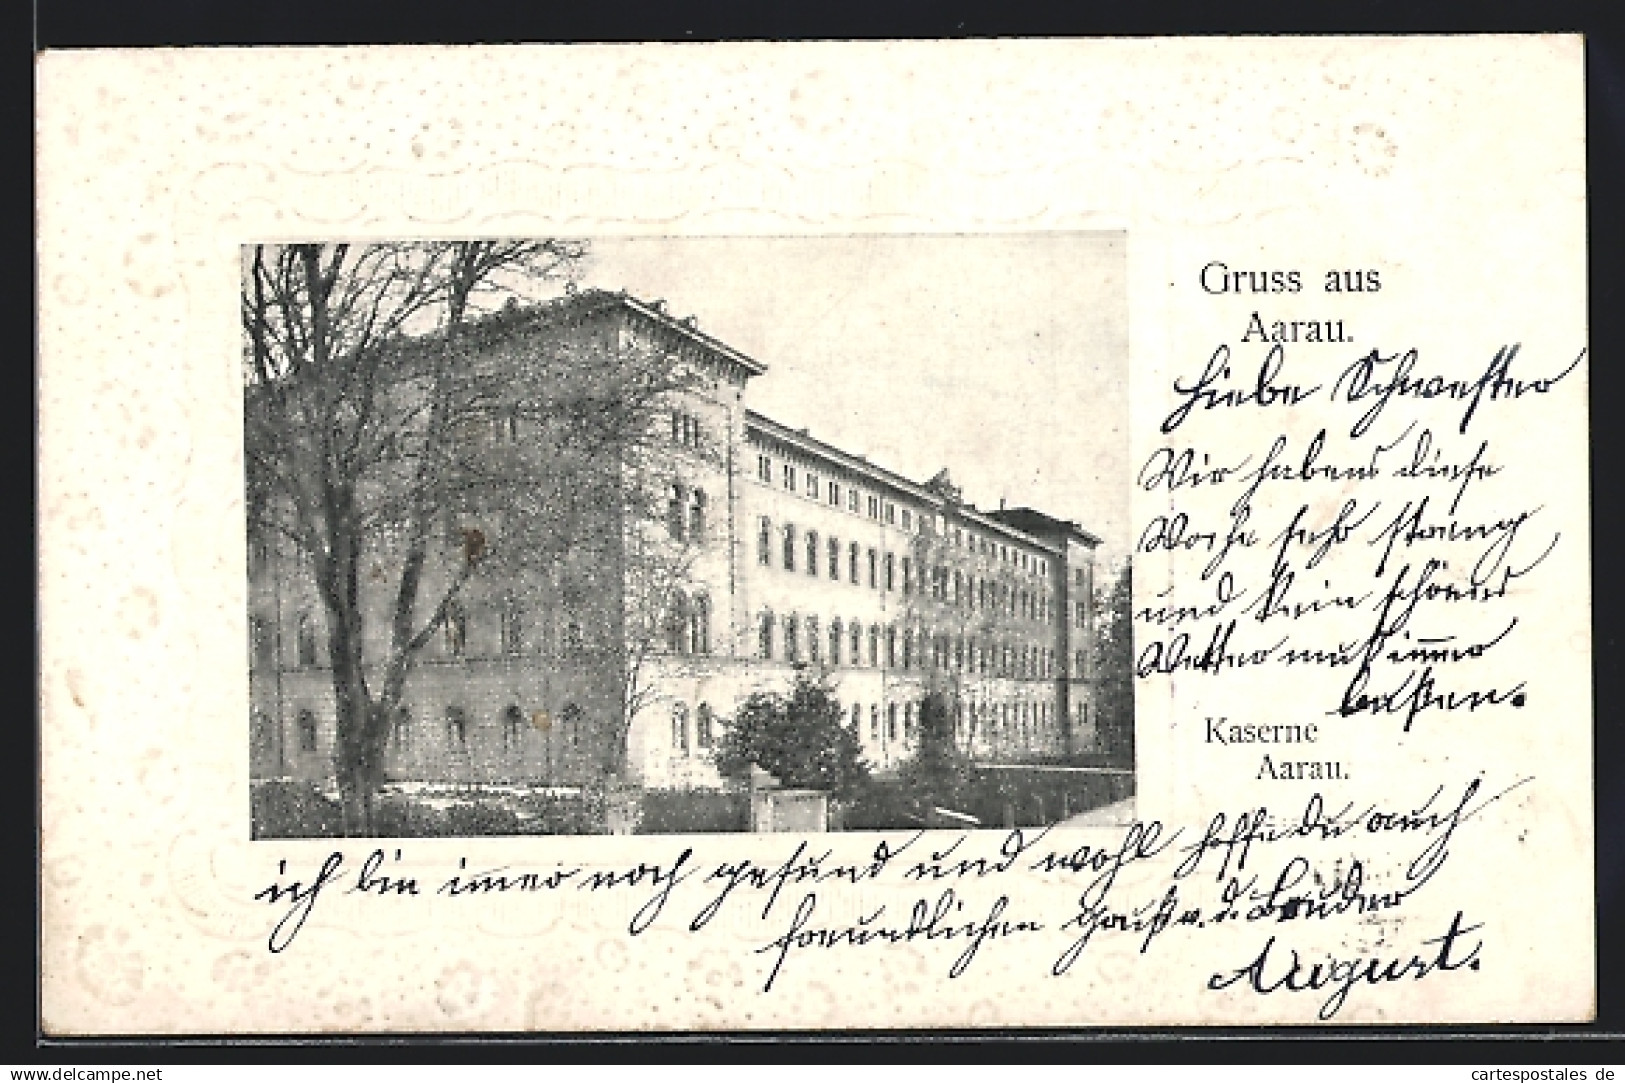 Gruss aus
Aarau.
Liebe Schwester
Wir haben diese
Woche sehr streng
und kein schönes
Wetter muß immer
Kaserne
Aarau.
ich bin immer noch gesund und wohl hoffe du auch
freundlichen Gruß v. d. Bruder
August.
www.delcampe.net
cartespostales de